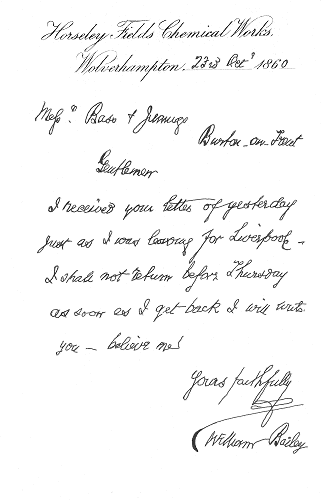 Horseley Fields Chemical Works.
Wolverhampton. 23rd Oct r 1860
Messrs Bass & Jennings
Burton-on-Trent
Gentlemen
I received your letter of yesterday
just as I was leaving for Liverpool -
I shall not return before Thursday
as soon as I get back I will write
you - believe me
Yours faithfully
William Bailey